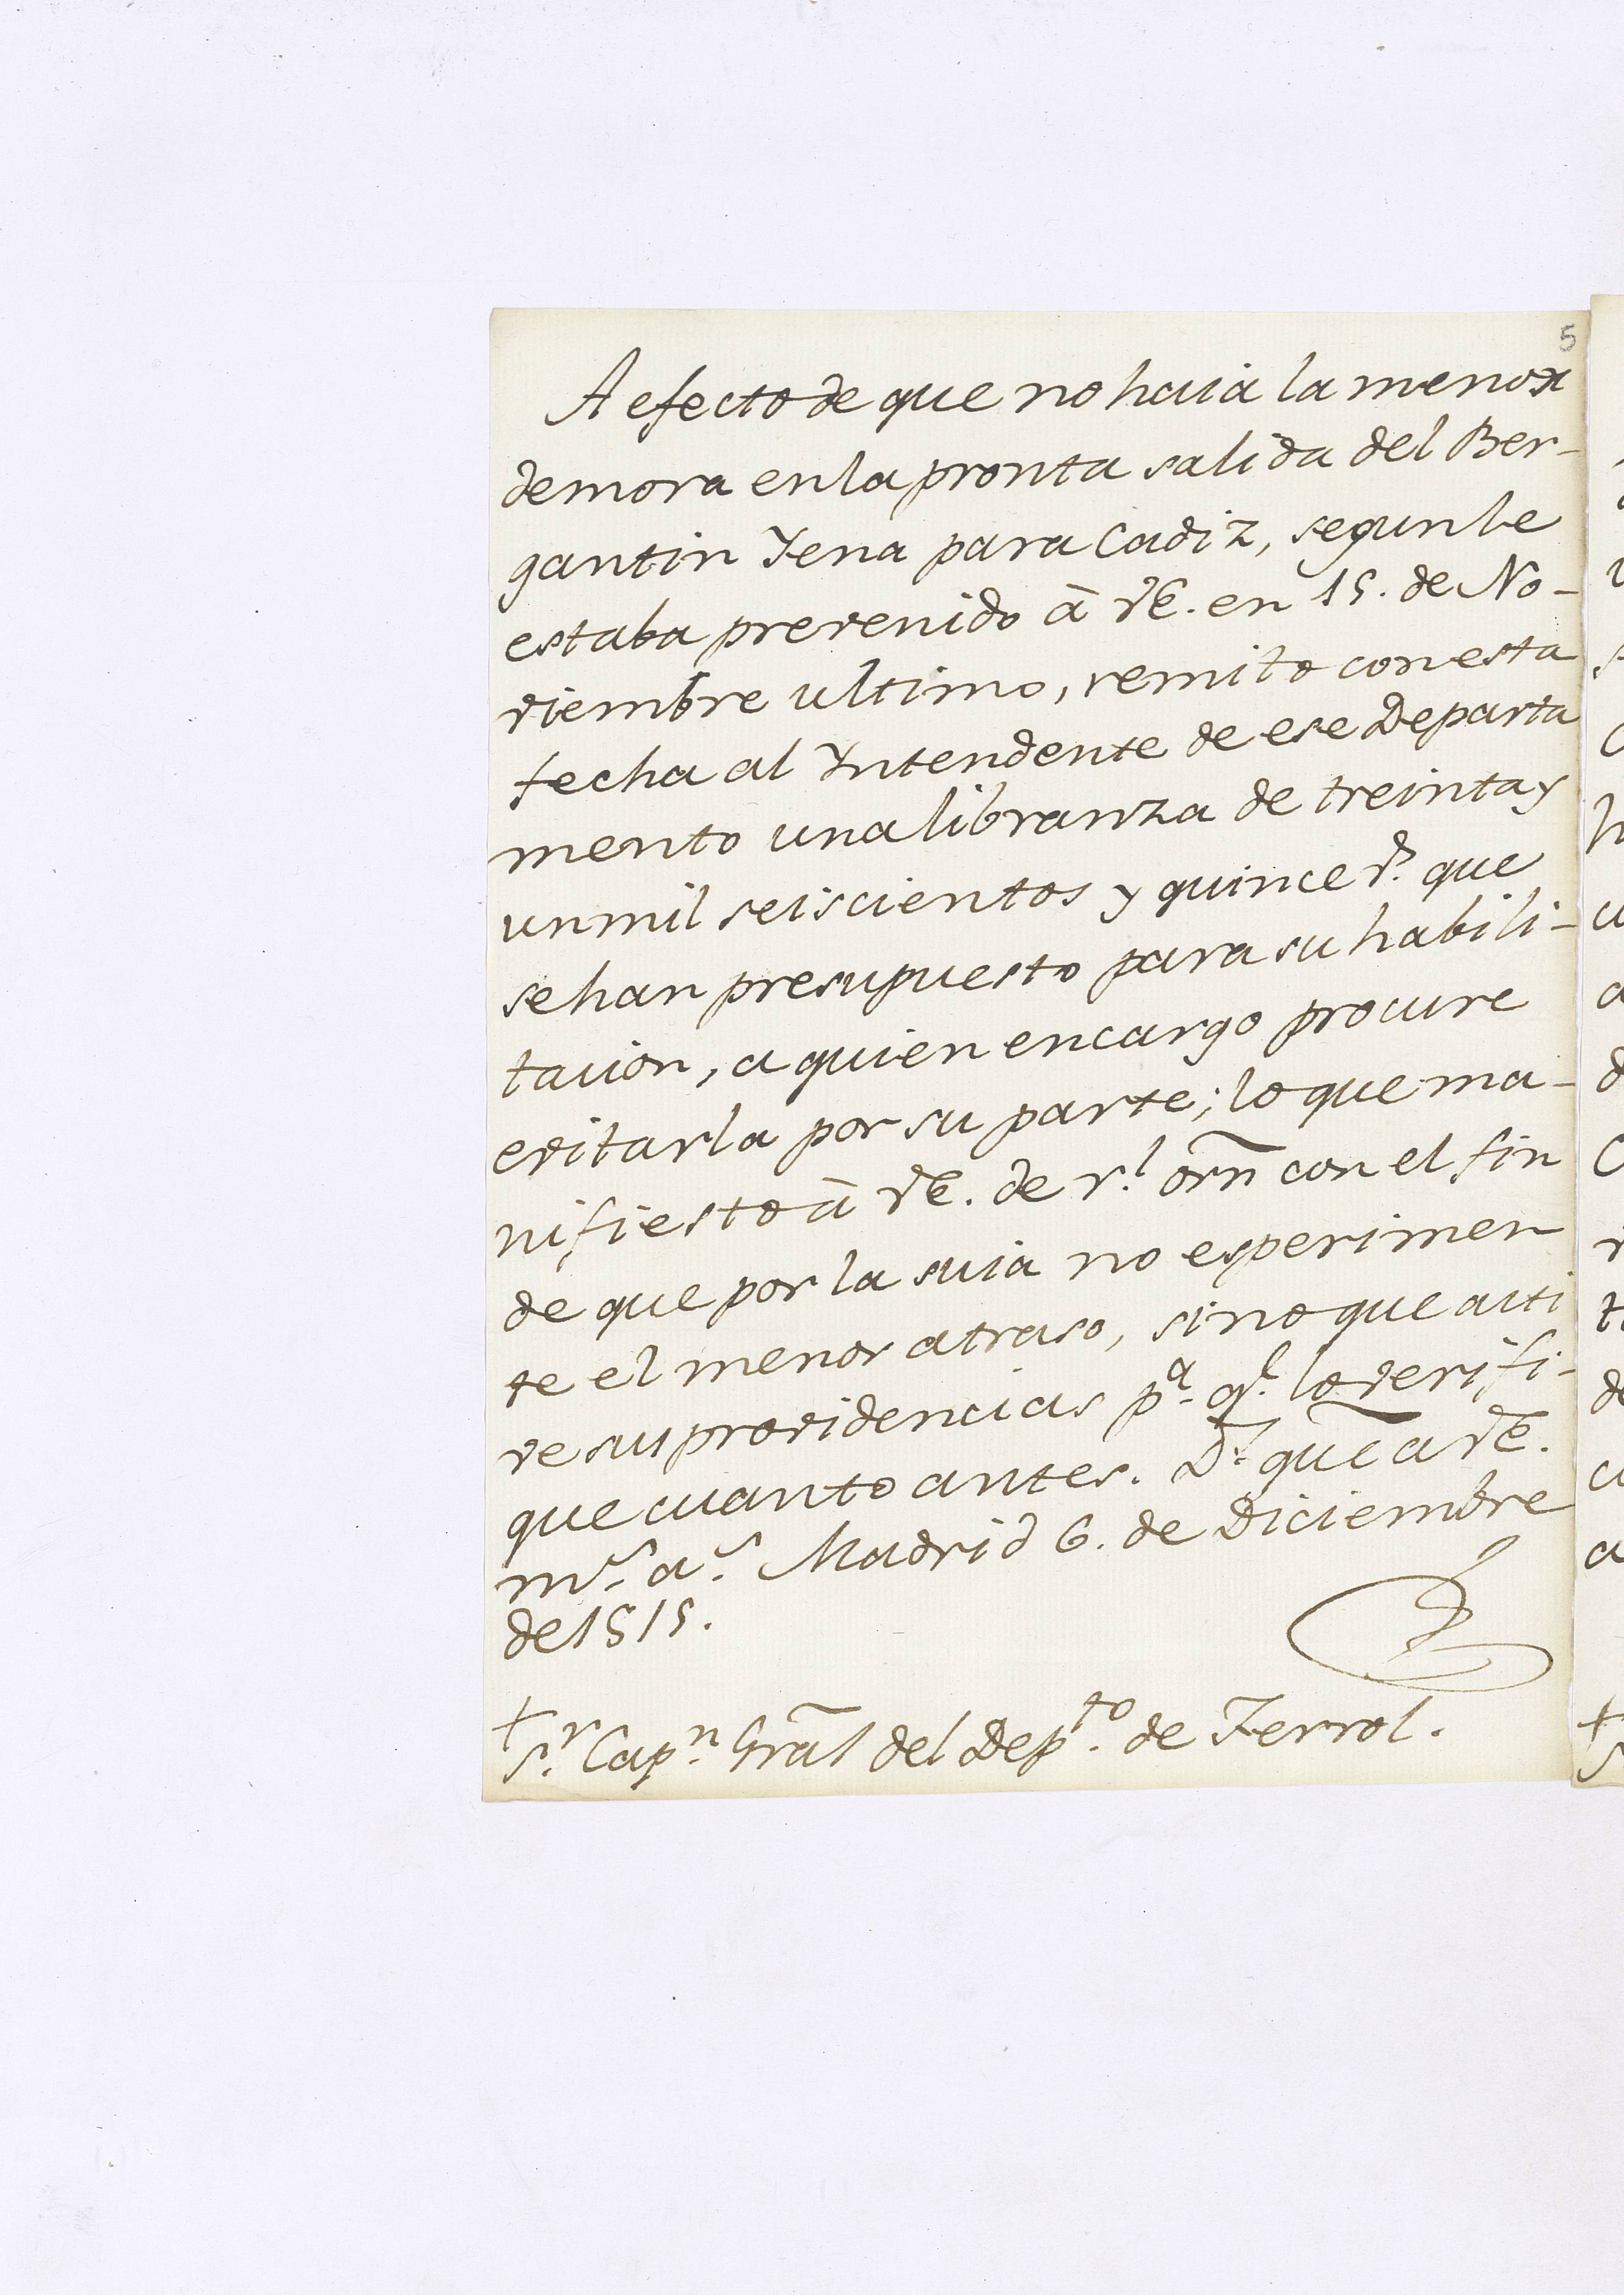 5
A efecto de que no haia la menor
demora en la pronta salida del Ber-
gantin Jena para Cadiz, segun le
estaba prevenido à VE. en 15. de No-
viembre ultimo, remito con esta
fecha al Yntendente de ese Departa
mento una libranza de treinta y
un mil seiscientos y quince r.s que
se han presupuesto para su habili-
tacion, a quien encargo procure
evitarla por su parte; lo que ma-
nifiesto à VE. de r.l orn con el fin
de que por la suia no esperimen
te el menor atraso, sino que acti
ve sus providencias p.a q.e lo verifi-
que cuanto antes. D.s gue à VE.
m.s a.s Madrid 6. de Diciembre
de 1815.
+
S.r Cap.n Gral del Dep.to de Ferrol.